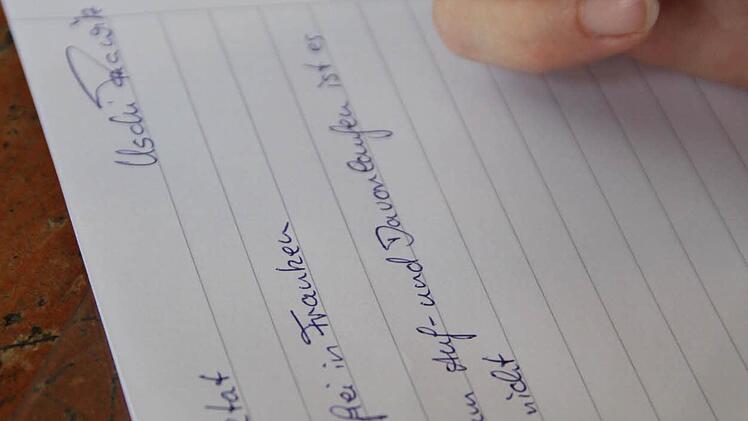 Uschi Prawitz
in Franken
Auf- und Davonlaufen ist es
nicht